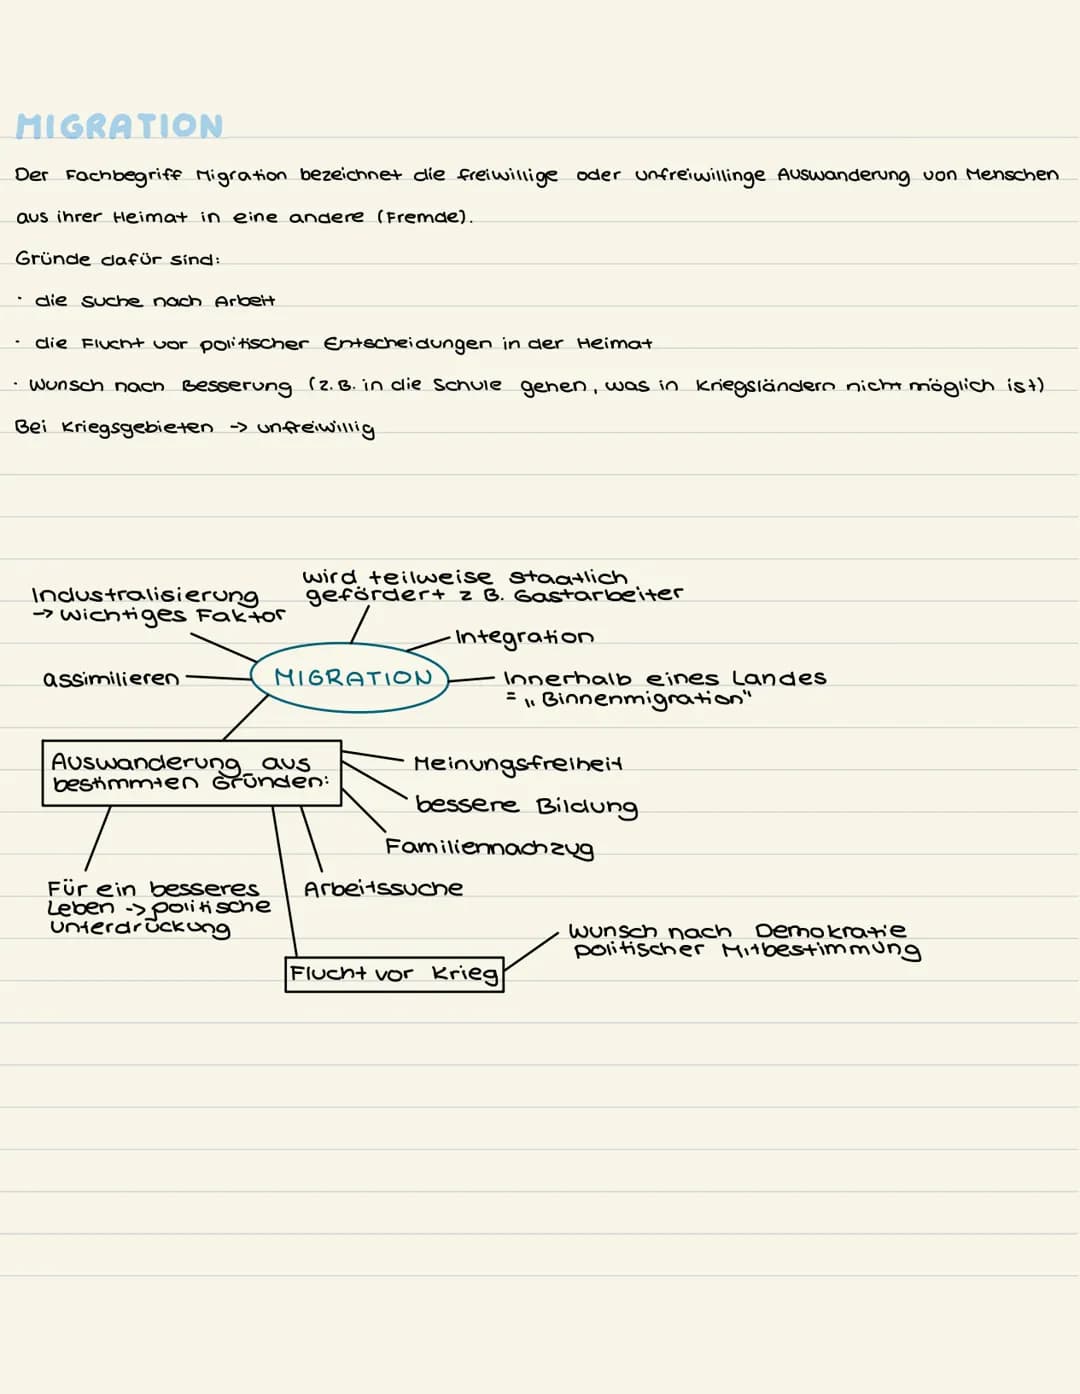 MIGRATION
Der Fachbegriff Migration bezeichnet die freiwillige oder unfreiwillinge Auswanderung von Menschen
aus ihrer Heimat in eine andere (Fremde).
Gründe dafür sind:
· die Suche nach Arbeit
· die Flucht vor politischer Entscheidungen in der Heimat
· Wunsch nach Besserung (z.B. in die Schule gehen, was in Kriegsländern nicht möglich ist)
Bei Kriegsgebieten -> unfreiwillig
wird teilweise staatlich
gefördert z B. Gastarbeiter
Industralisierung
-> wichtiges Faktor
Integration
assimilieren
MIGRATION
Innerhalb eines Landes
= „Binnenmigration"
Auswanderung aus
bestimmten Gründen:
Meinungsfreiheit
bessere Bildung
Familiennachzug
Für ein besseres
Leben -> politische
Unterdrückung
Arbeitssuche
Wunsch nach Demokratie
politischer Mitbestimmung
Flucht vor Krieg